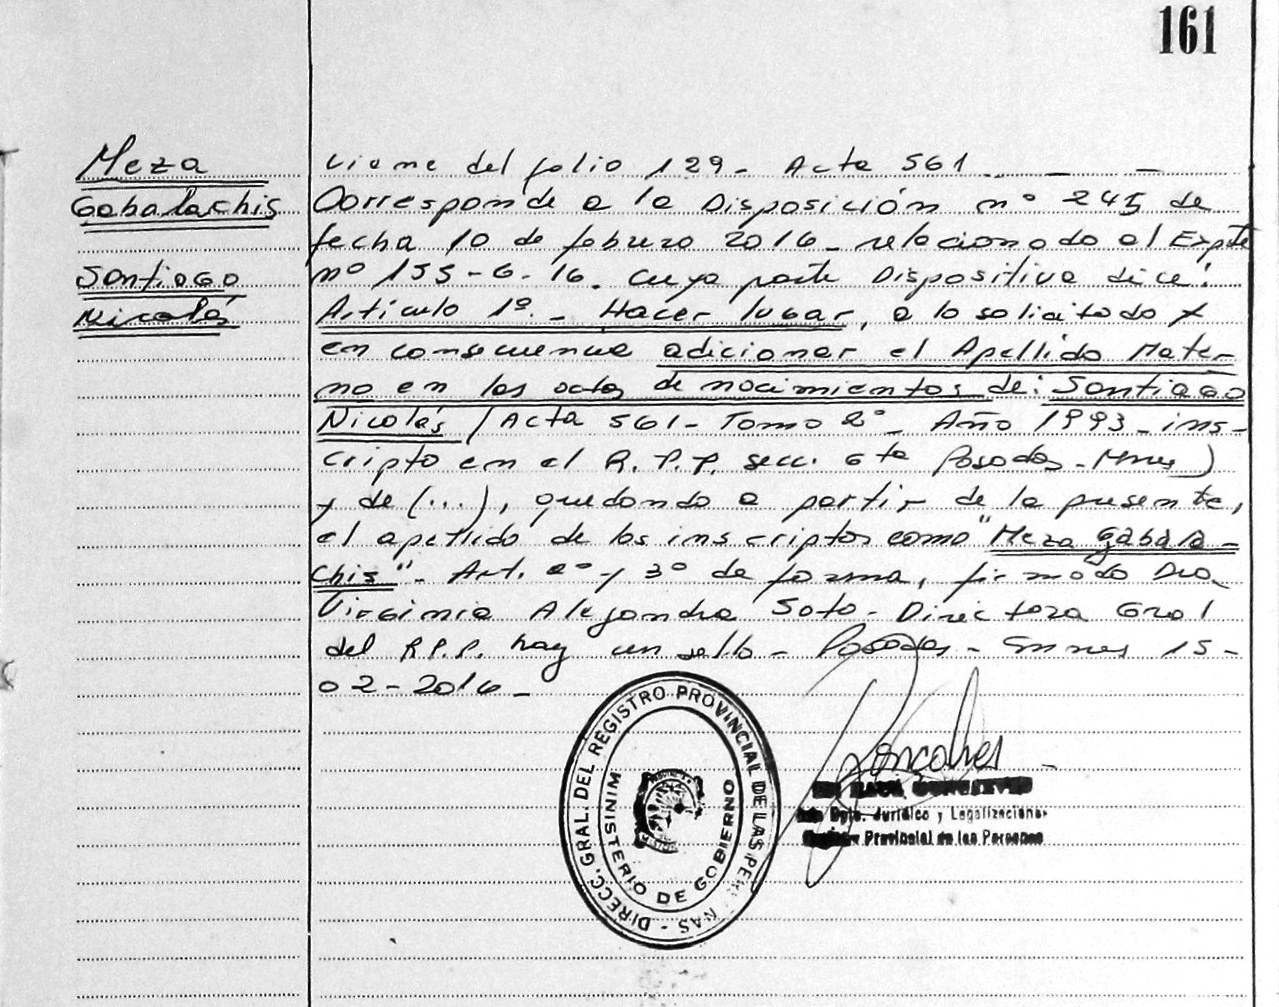 161
Meza
Gabalachis
Santiago
Nicolás
Viene del folio 129- Acta 561
Corresponde a la Disposición nº 245 de
fecha 10 de febrero 2016- relacionado al Expte
nº 155-G-16. cuya parte Dispositiva dice:
Artículo 1º.- Hacer lugar, a lo solicitado y
en consecuencia adicionar el Apellido Mater-
no en las actas de nacimientos de: Santiago
Nicolás (Acta 561- Tomo 2º- Año 1993- ins-
cripto en el R.P.P. secc. 6ta Posadas- Mnes)
y de (...), quedando a partir de la presente,
el apellido de los inscriptos como "Meza Gabala-
chis"- Art. 2º y 3º de forma, firmado Dra.
Virginia Alejandra Soto- Directora Gral
del R.P.P. hay un sello- Posadas- Mnes 15-
02-2016-
DIRECC. GRAL. DEL REGISTRO PROVINCIAL DE LAS PERSONAS -
MINISTERIO DE GOBIERNO
Dpto. Jurídico y Legalizaciones
Provincial de las Personas